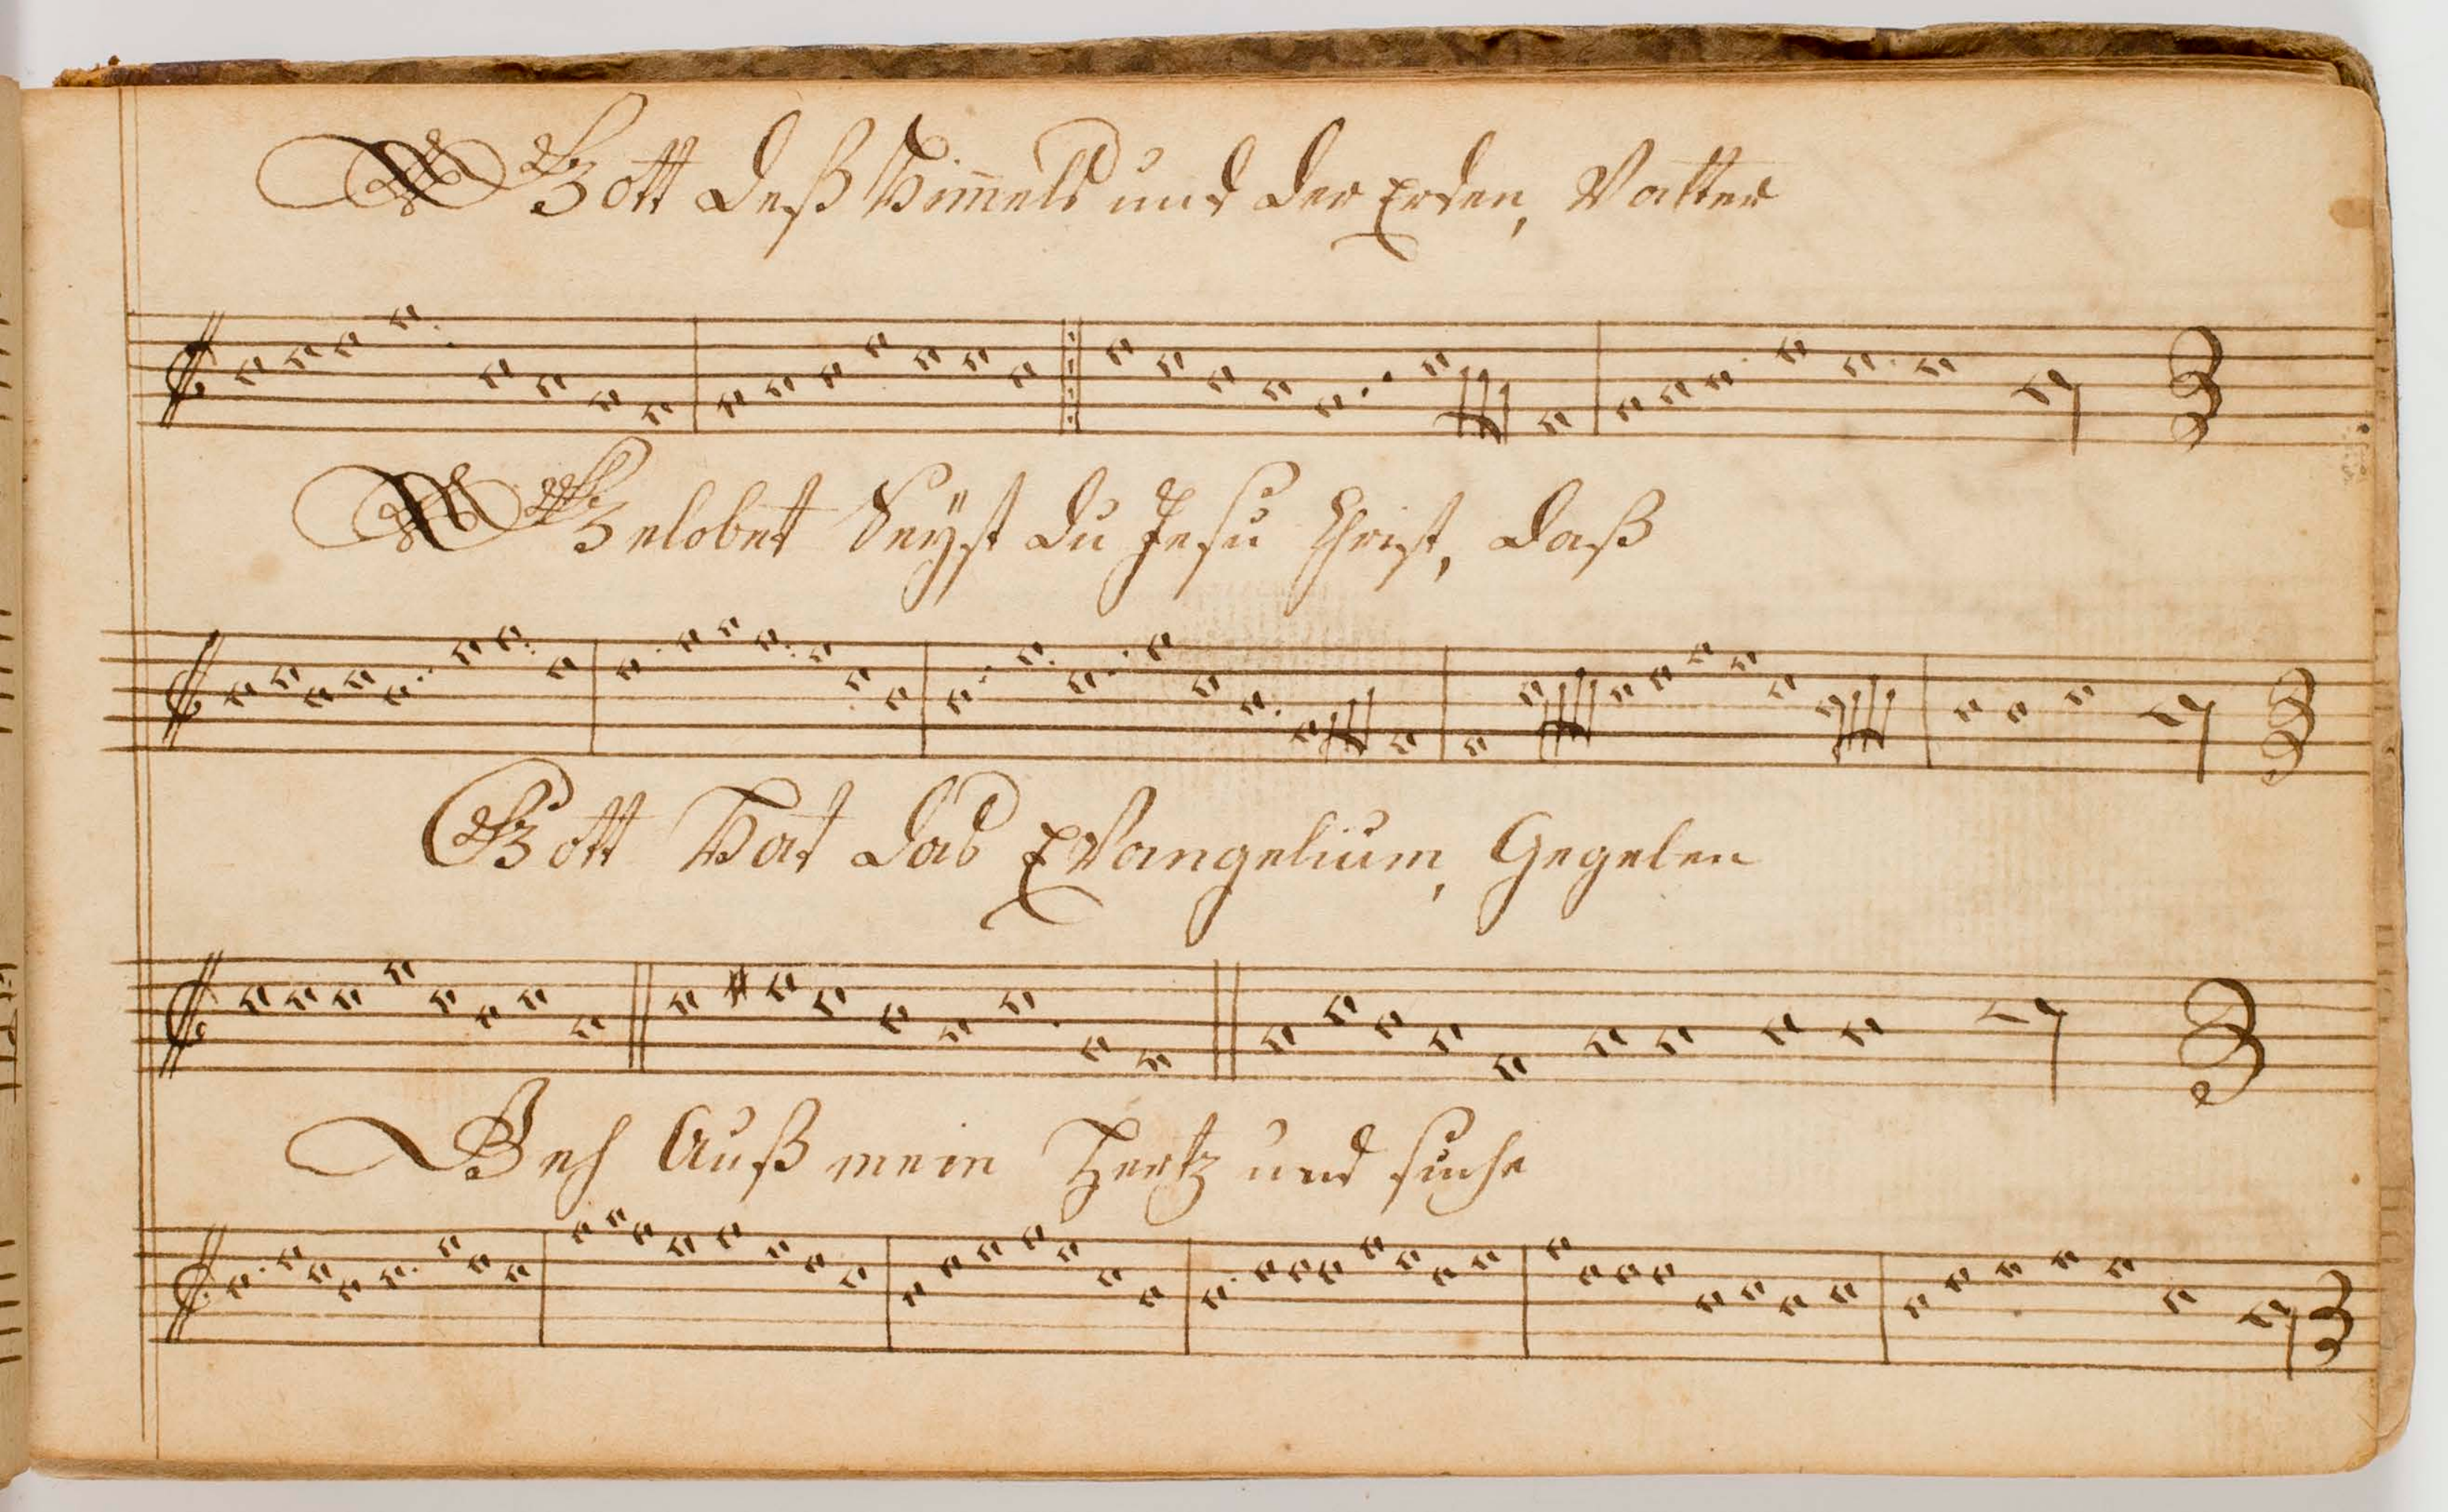 Gott deß Himmels und der Erden, Vatter
Gelobet Seyst du Jesu Christ, daß
Gott Hat das EVangelium, Gegeben
Geh Auß mein Hertz und suche